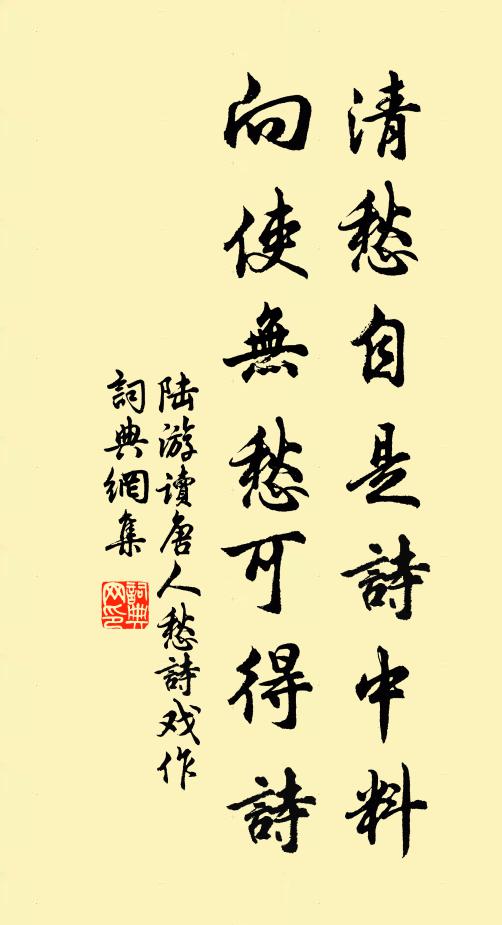 清愁自是詩中料
向使無愁可得詩
陆游讀唐人愁詩戏作
詞典網集
詞典
网印